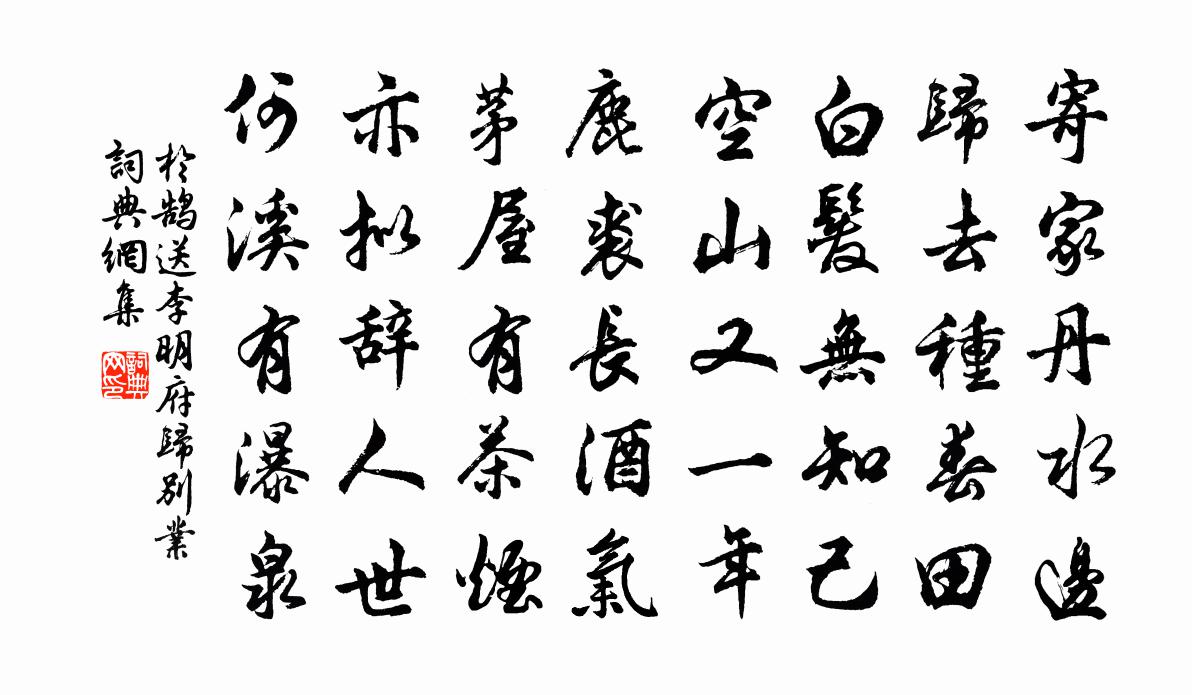 寄家丹水邊
歸去種春田
白髮無知己
空山又一年
鹿裘長酒氣
茅屋有茶煙
亦拟辞人世
何溪有瀑泉
於鵠送李明府歸別業
詞典網集
詞典
网印